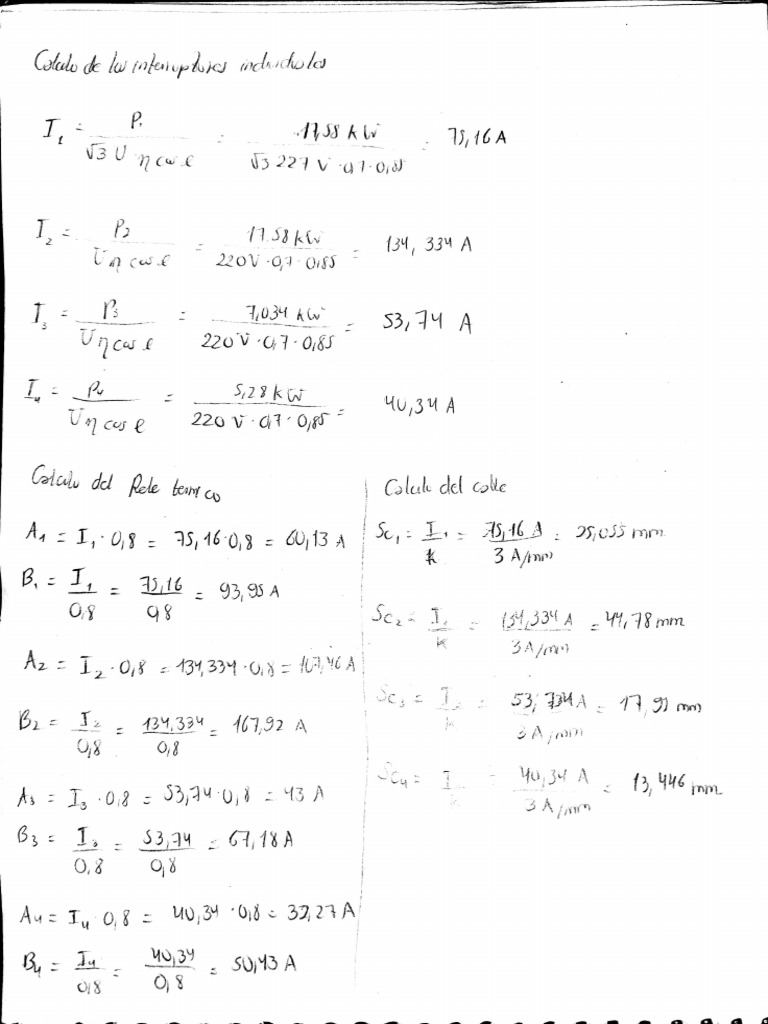 Calculo de los interruptores individuales
I₁ = P₁ / √3 U η cos φ = 17,58 kW / √3 227 V · 0,7 · 0,85 = 75,16 A
I₂ = P₂ / U η cos φ = 17.58 kW / 220 V · 0,7 · 0,85 = 134,334 A
I₃ = P₃ / U η cos φ = 7,034 kW / 220 V · 0,7 · 0,85 = 53,74 A
I₄ = P₄ / U η cos φ = 5,28 kW / 220 V · 0,7 · 0,85 = 40,34 A
Calculo del Rele termico
A₁ = I₁ · 0,8 = 75,16 · 0,8 = 60,13 A
B₁ = I₁ / 0,8 = 75,16 / 0,8 = 93,95 A
A₂ = I₂ · 0,8 = 134,334 · 0,8 = 107,46 A
B₂ = I₂ / 0,8 = 134,334 / 0,8 = 167,92 A
A₃ = I₃ · 0,8 = 53,74 · 0,8 = 43 A
B₃ = I₃ / 0,8 = 53,74 / 0,8 = 67,18 A
A₄ = I₄ 0,8 = 40,34 · 0,8 = 32,27 A
B₄ = I₄ / 0,8 = 40,34 / 0,8 = 50,43 A
Calculo del cable
Sc₁ = I₁ / k = 75,16 A / 3 A/mm = 25,055 mm
Sc₂ = I / k = 134,334 A / 3 A/mm = 44,78 mm
Sc₃ = I / k = 53,734 A / 3 A/mm = 17,91 mm
Sc₄ = I / k = 40,34 A / 3 A/mm = 13,446 mm